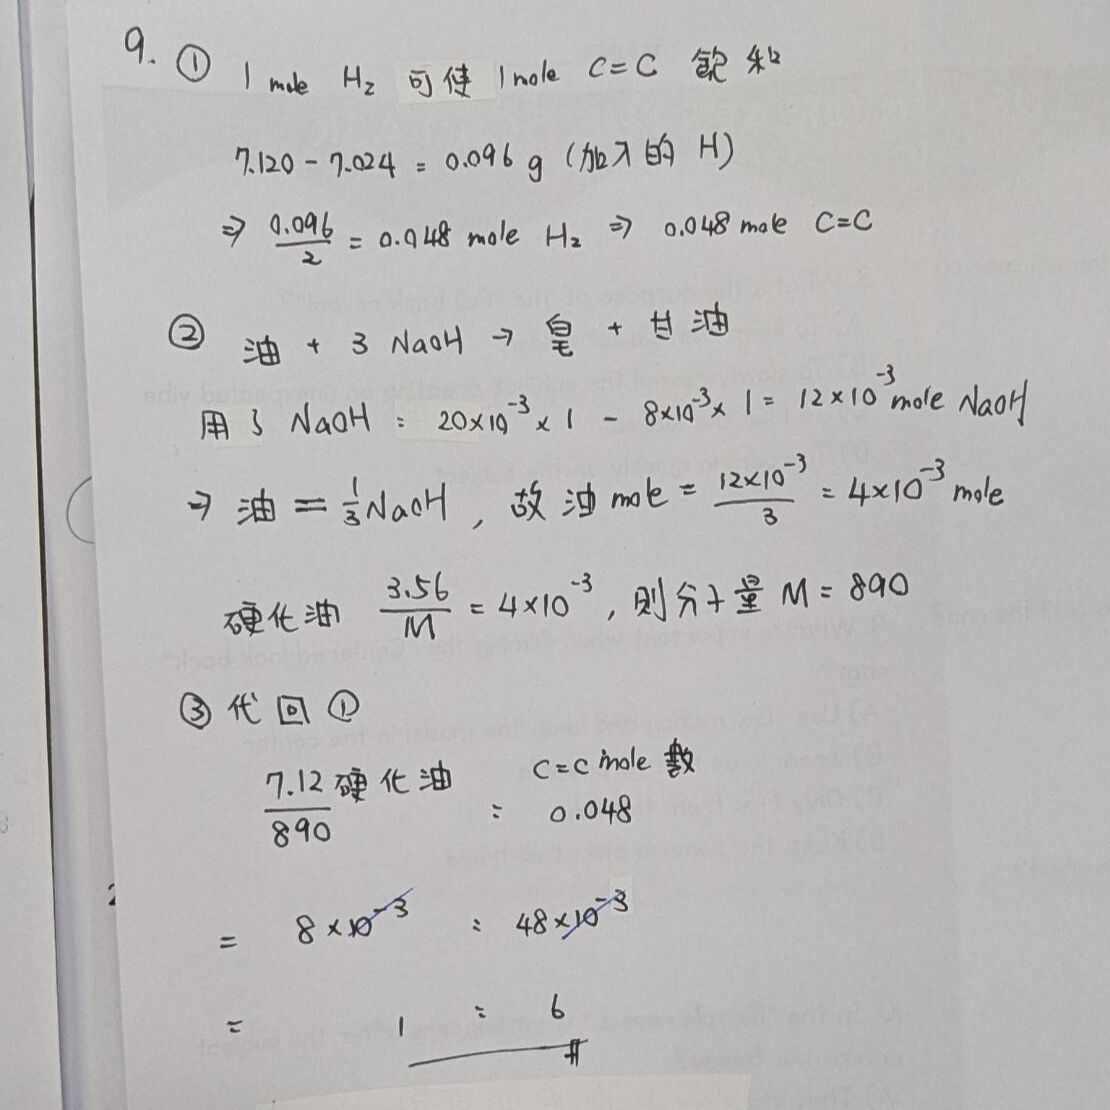 9. ① 1 mole H₂ 可使 1 mole C=C 飽和
7.120 - 7.024 = 0.096 g (加入的 H)
⇒ 0.096/2 = 0.048 mole H₂ ⇒ 0.048 mole C=C
② 油 + 3 NaOH → 皂 + 甘油
用了 NaOH = 20×10⁻³ × 1 - 8×10⁻³ × 1 = 12×10⁻³ mole NaOH
⇒ 油 = 1/3 NaOH, 故油 mole = 12×10⁻³/3 = 4×10⁻³ mole
硬化油 3.56/M = 4×10⁻³, 則分子量 M = 890
③ 代回 ①
C=C mole 數
7.12/890 硬化油 : 0.048
= 8×10⁻³ : 48×10⁻³
= 1 : 6 #